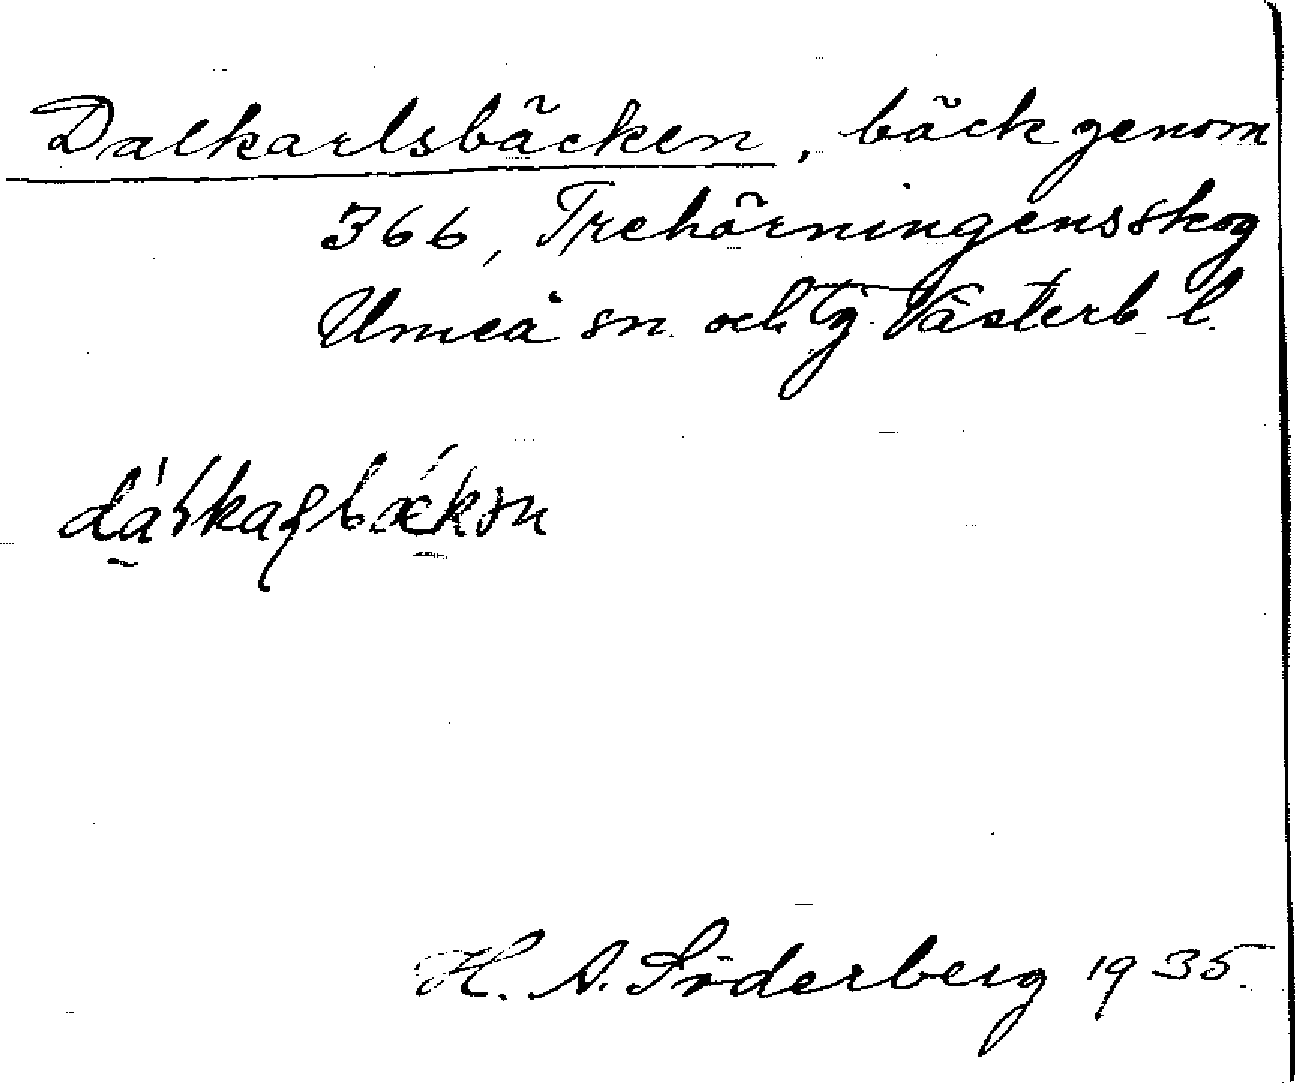 Dalkarlsbäcken, bäck genom
366, Trehörningensskog
Umeå sn. och tg. Västerb l.
H. A. Söderberg 1935.